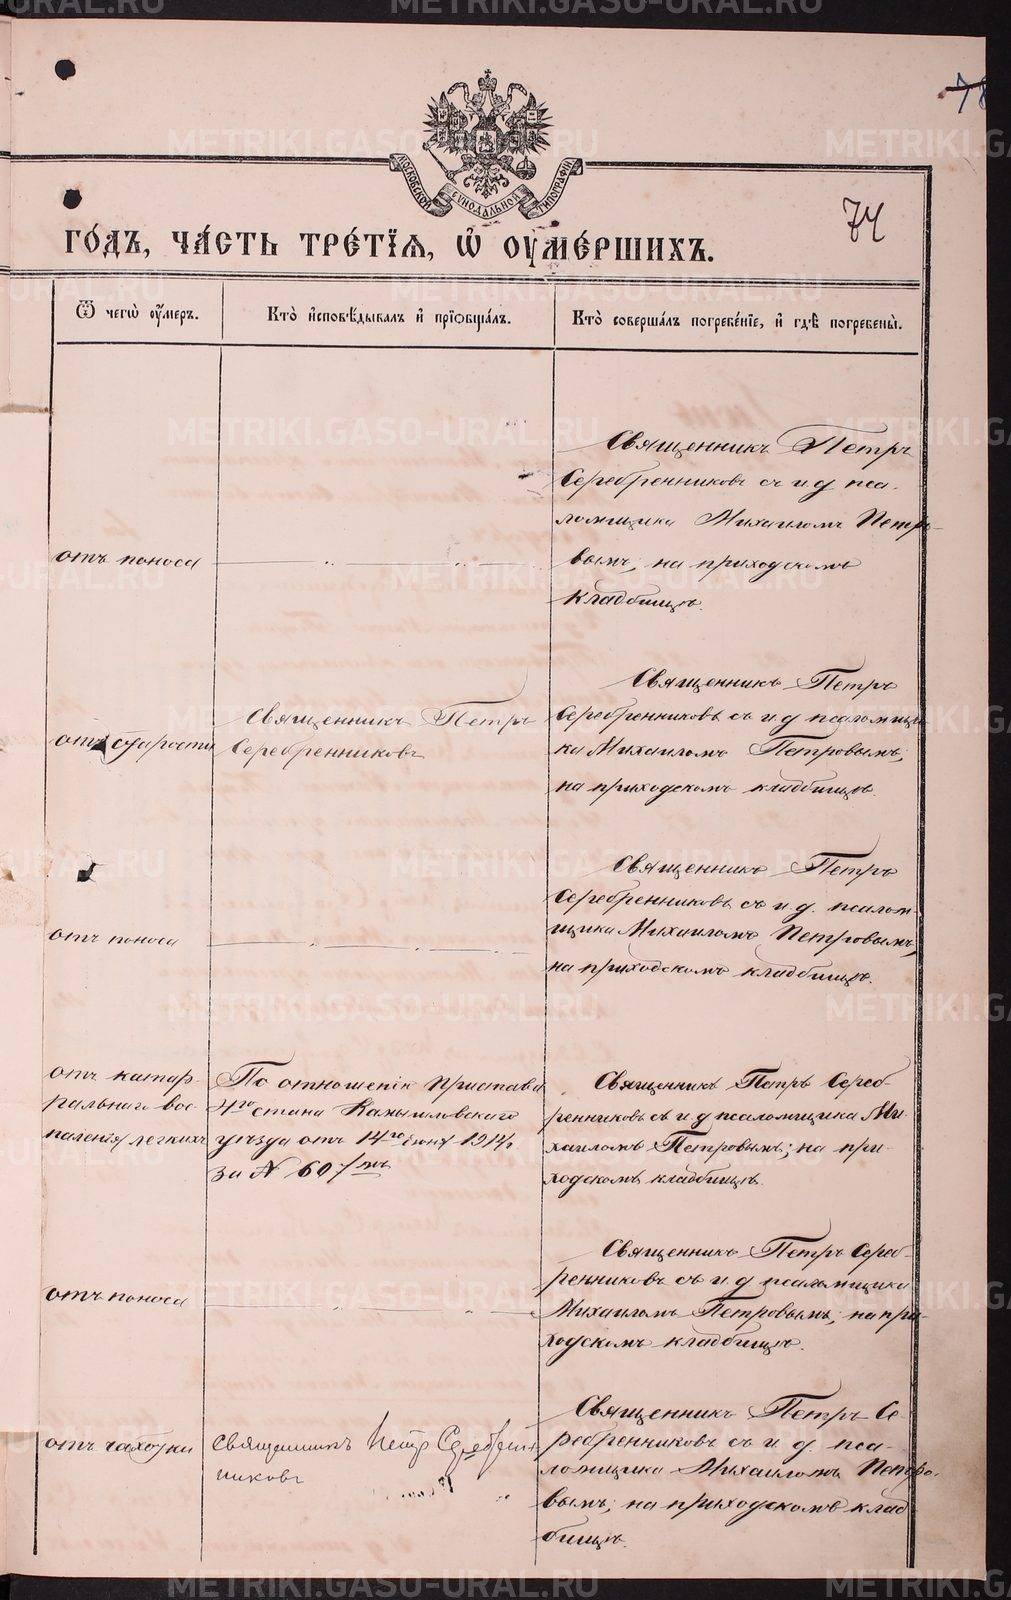 METRIKI.GASO-URAL.RU
МОСКОВСКОЙ СѴНОДАЛЬНОЙ ТИПОГРАФІИ
74
ГО́ДЪ, ЧА́СТЬ ТРЕ́ТІѦ, Ѡ҆ ОУМЕ́РШИХЪ.
Ѿ чегѡ̀ оу҆́меръ.
Кто̀ и҆сповѣ́дывалъ и҆ прїѡбща́лъ.
Кто̀ соверша́лъ погребе́нїе, и҆ гдѣ̀ погребены̀.
отъ поноса
Священникъ Петръ
Серебренниковъ съ и. д. пса-
ломщика Михаиломъ Петро-
вымъ; на приходскомъ
кладбищѣ.
отъ старости
Священникъ Петръ
Серебренниковъ
Священникъ Петръ
Серебренниковъ съ и. д. псаломщи-
ка Михаиломъ Петровымъ;
на приходскомъ кладбищѣ.
отъ поноса
Священникъ Петръ
Серебренниковъ съ и. д. псалом-
щика Михаиломъ Петровымъ,
на приходскомъ кладбищѣ.
отъ катар-
ральнаго вос-
паленія легкихъ
По отношенію пристава
4го стана Камышловскаго
уѣзда отъ 14го іюня 1914 г.
за №
Священникъ Петръ Сереб-
ренниковъ съ и. д. псаломщика Ми-
хаиломъ Петровымъ; на при-
ходскомъ кладбищѣ.
отъ поноса
Священникъ Петръ Сереб-
ренниковъ съ и. д. псаломщика
Михаиломъ Петровымъ; на при-
ходскомъ кладбищѣ.
отъ чахотки
Священникъ Петръ Серебрен-
никовъ
Священникъ Петръ Се-
ребренниковъ съ и. д. пса-
ломщика Михаиломъ Петро-
вымъ; на приходскомъ клад-
бищѣ.